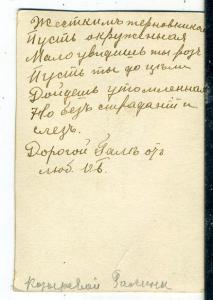 Жесткимъ терновникомъ
Пусть окруженная
Мало увидишь ты розъ
Пусть ты до цѣли
Дойдешь утомленная
Но безъ страданій и
слезъ.
Дорогой Галѣ отъ
люб.
Козыревой Галины